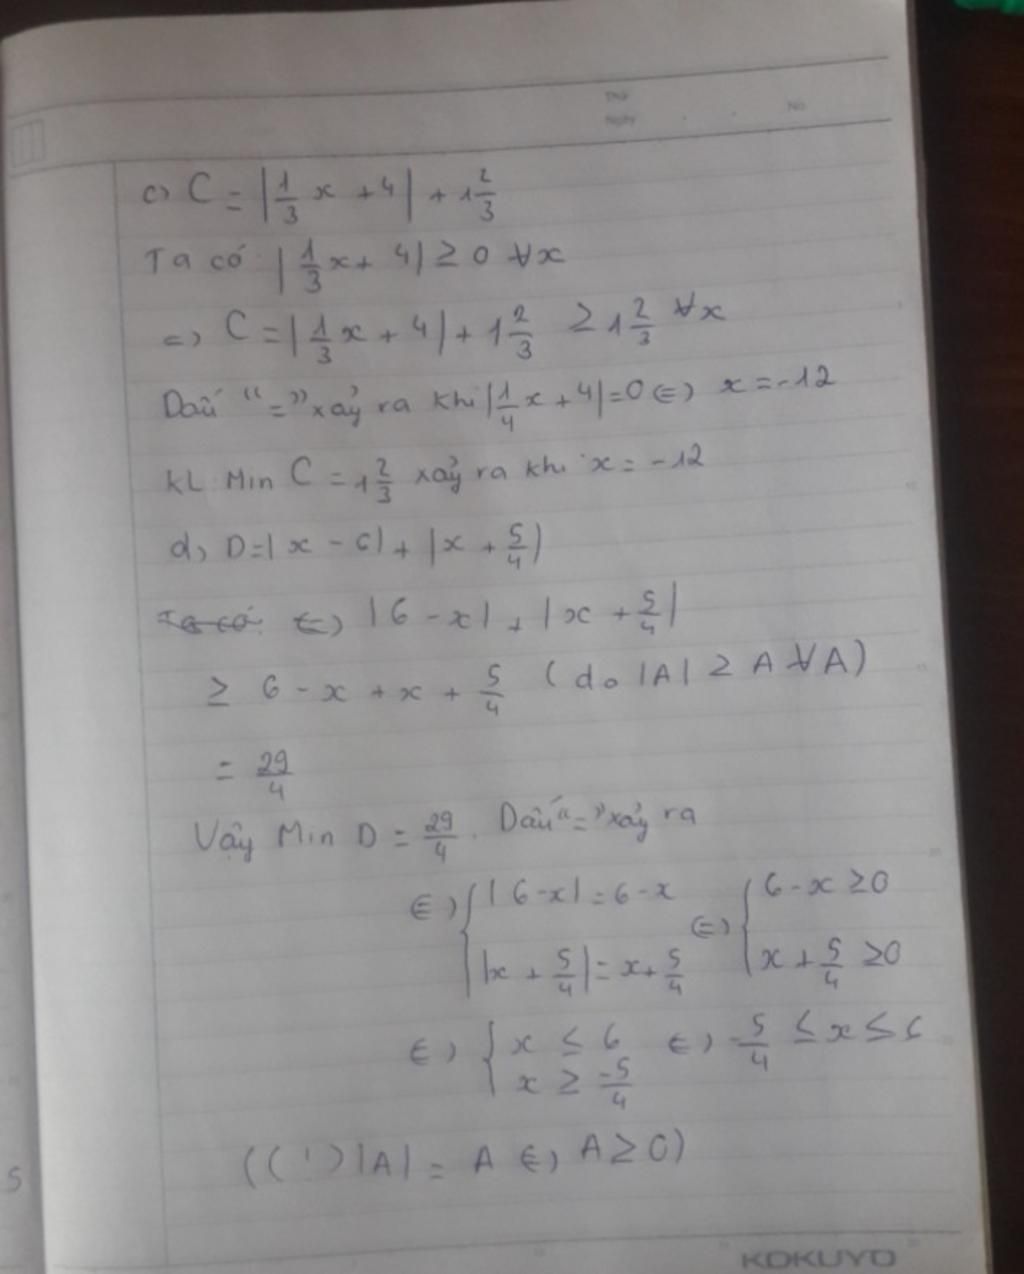 Thứ
Ngày
No
c) C = |1/3 x + 4| + 1 2/3
Ta có |1/3 x + 4| ≥ 0 ∀x
=> C = |1/3 x + 4| + 1 2/3 ≥ 1 2/3 ∀x
Dấu "=" xảy ra khi |1/4 x + 4| = 0 <=> x = -12
KL Min C = 1 2/3 xảy ra khi x = -12
d, D = |x - 6| + |x + 5/4|
Ta có: <=> |6 - x| + |x + 5/4|
≥ 6 - x + x + 5/4 (do |A| ≥ A ∀A)
= 29/4
Vậy Min D = 29/4. Dấu "=" xảy ra
<=> { |6 - x| = 6 - x <=> { 6 - x ≥ 0
|x + 5/4| = x + 5/4 x + 5/4 ≥ 0
<=> { x ≤ 6 <=> -5/4 ≤ x ≤ 6
x ≥ -5/4
((') |A| = A <=> A ≥ 0)
5
KOKUYO